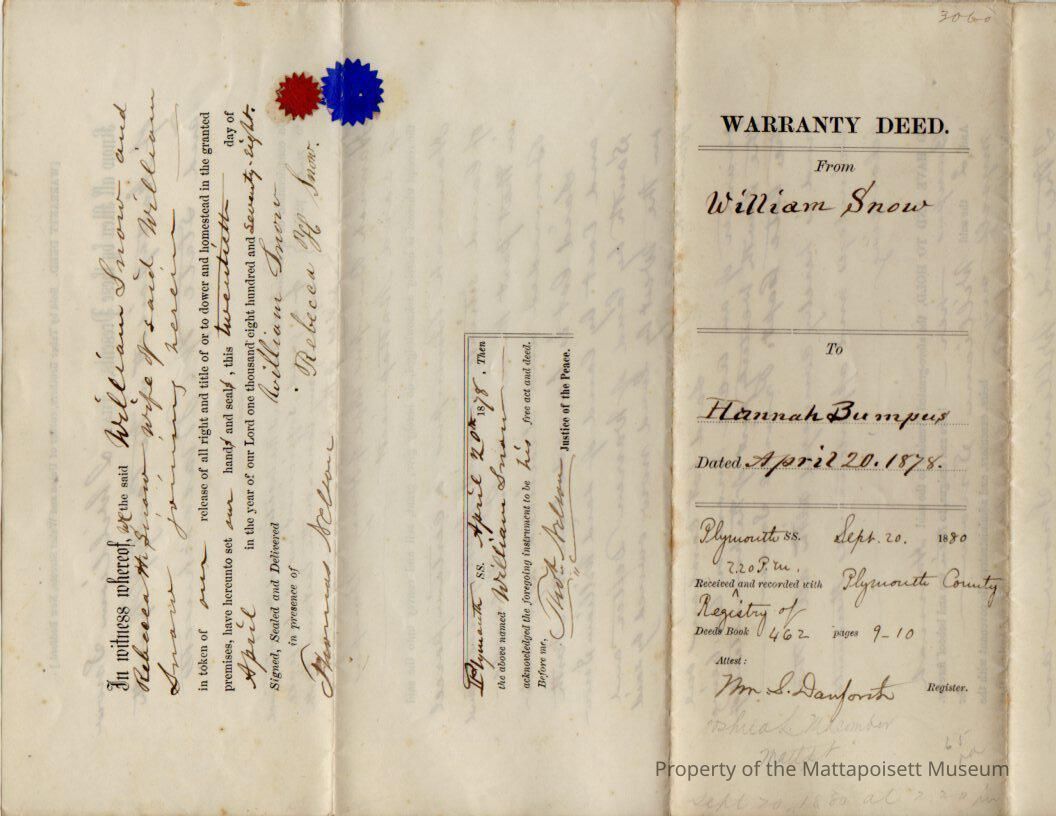 In witness whereof, we the said William Snow and
Rebecca H Snow wife of said William
Snow joining herein
in token of our release of all right and title of or to dower and homestead in the granted
premises, have hereunto set our hands and seals, this twentieth day of
April in the year of our Lord one thousand eight hundred and seventy-eight.
Signed, Sealed and Delivered
in presence of
William Snow
Thomas Nelson
Rebecca H Snow.
Plymouth ss. April 20th 1878. Then
the above named William Snow
acknowledged the foregoing instrument to be his free act and deed.
Before me,
Thos Nelson
Justice of the Peace.
3060
WARRANTY DEED.
From
William Snow
To
Hannah Bumpus
Dated April 20. 1878.
Plymouth ss. Sept. 20. 1880
2.20 P.m.
Received and recorded with Plymouth County
Registry of
Deeds Book 462 pages 9-10
Attest:
Wm. S. Danforth Register.
Joshua L Macomber
Sept 20, 1880 at 2.20 pm
Property of the Mattapoisett Museum